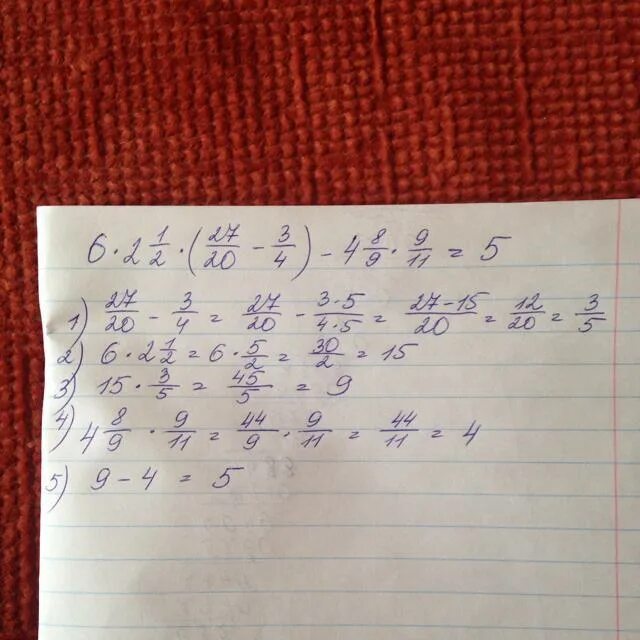 6 · 2 1/2 · (27/20 - 3/4) - 4 8/9 · 9/11 = 5
1) 27/20 - 3/4 = 27/20 - 3·5/4·5 = 27-15/20 = 12/20 = 3/5
2) 6 · 2 1/2 = 6 · 5/2 = 30/2 = 15
3) 15 · 3/5 = 45/5 = 9
4) 4 8/9 · 9/11 = 44/9 · 9/11 = 44/11 = 4
5) 9 - 4 = 5